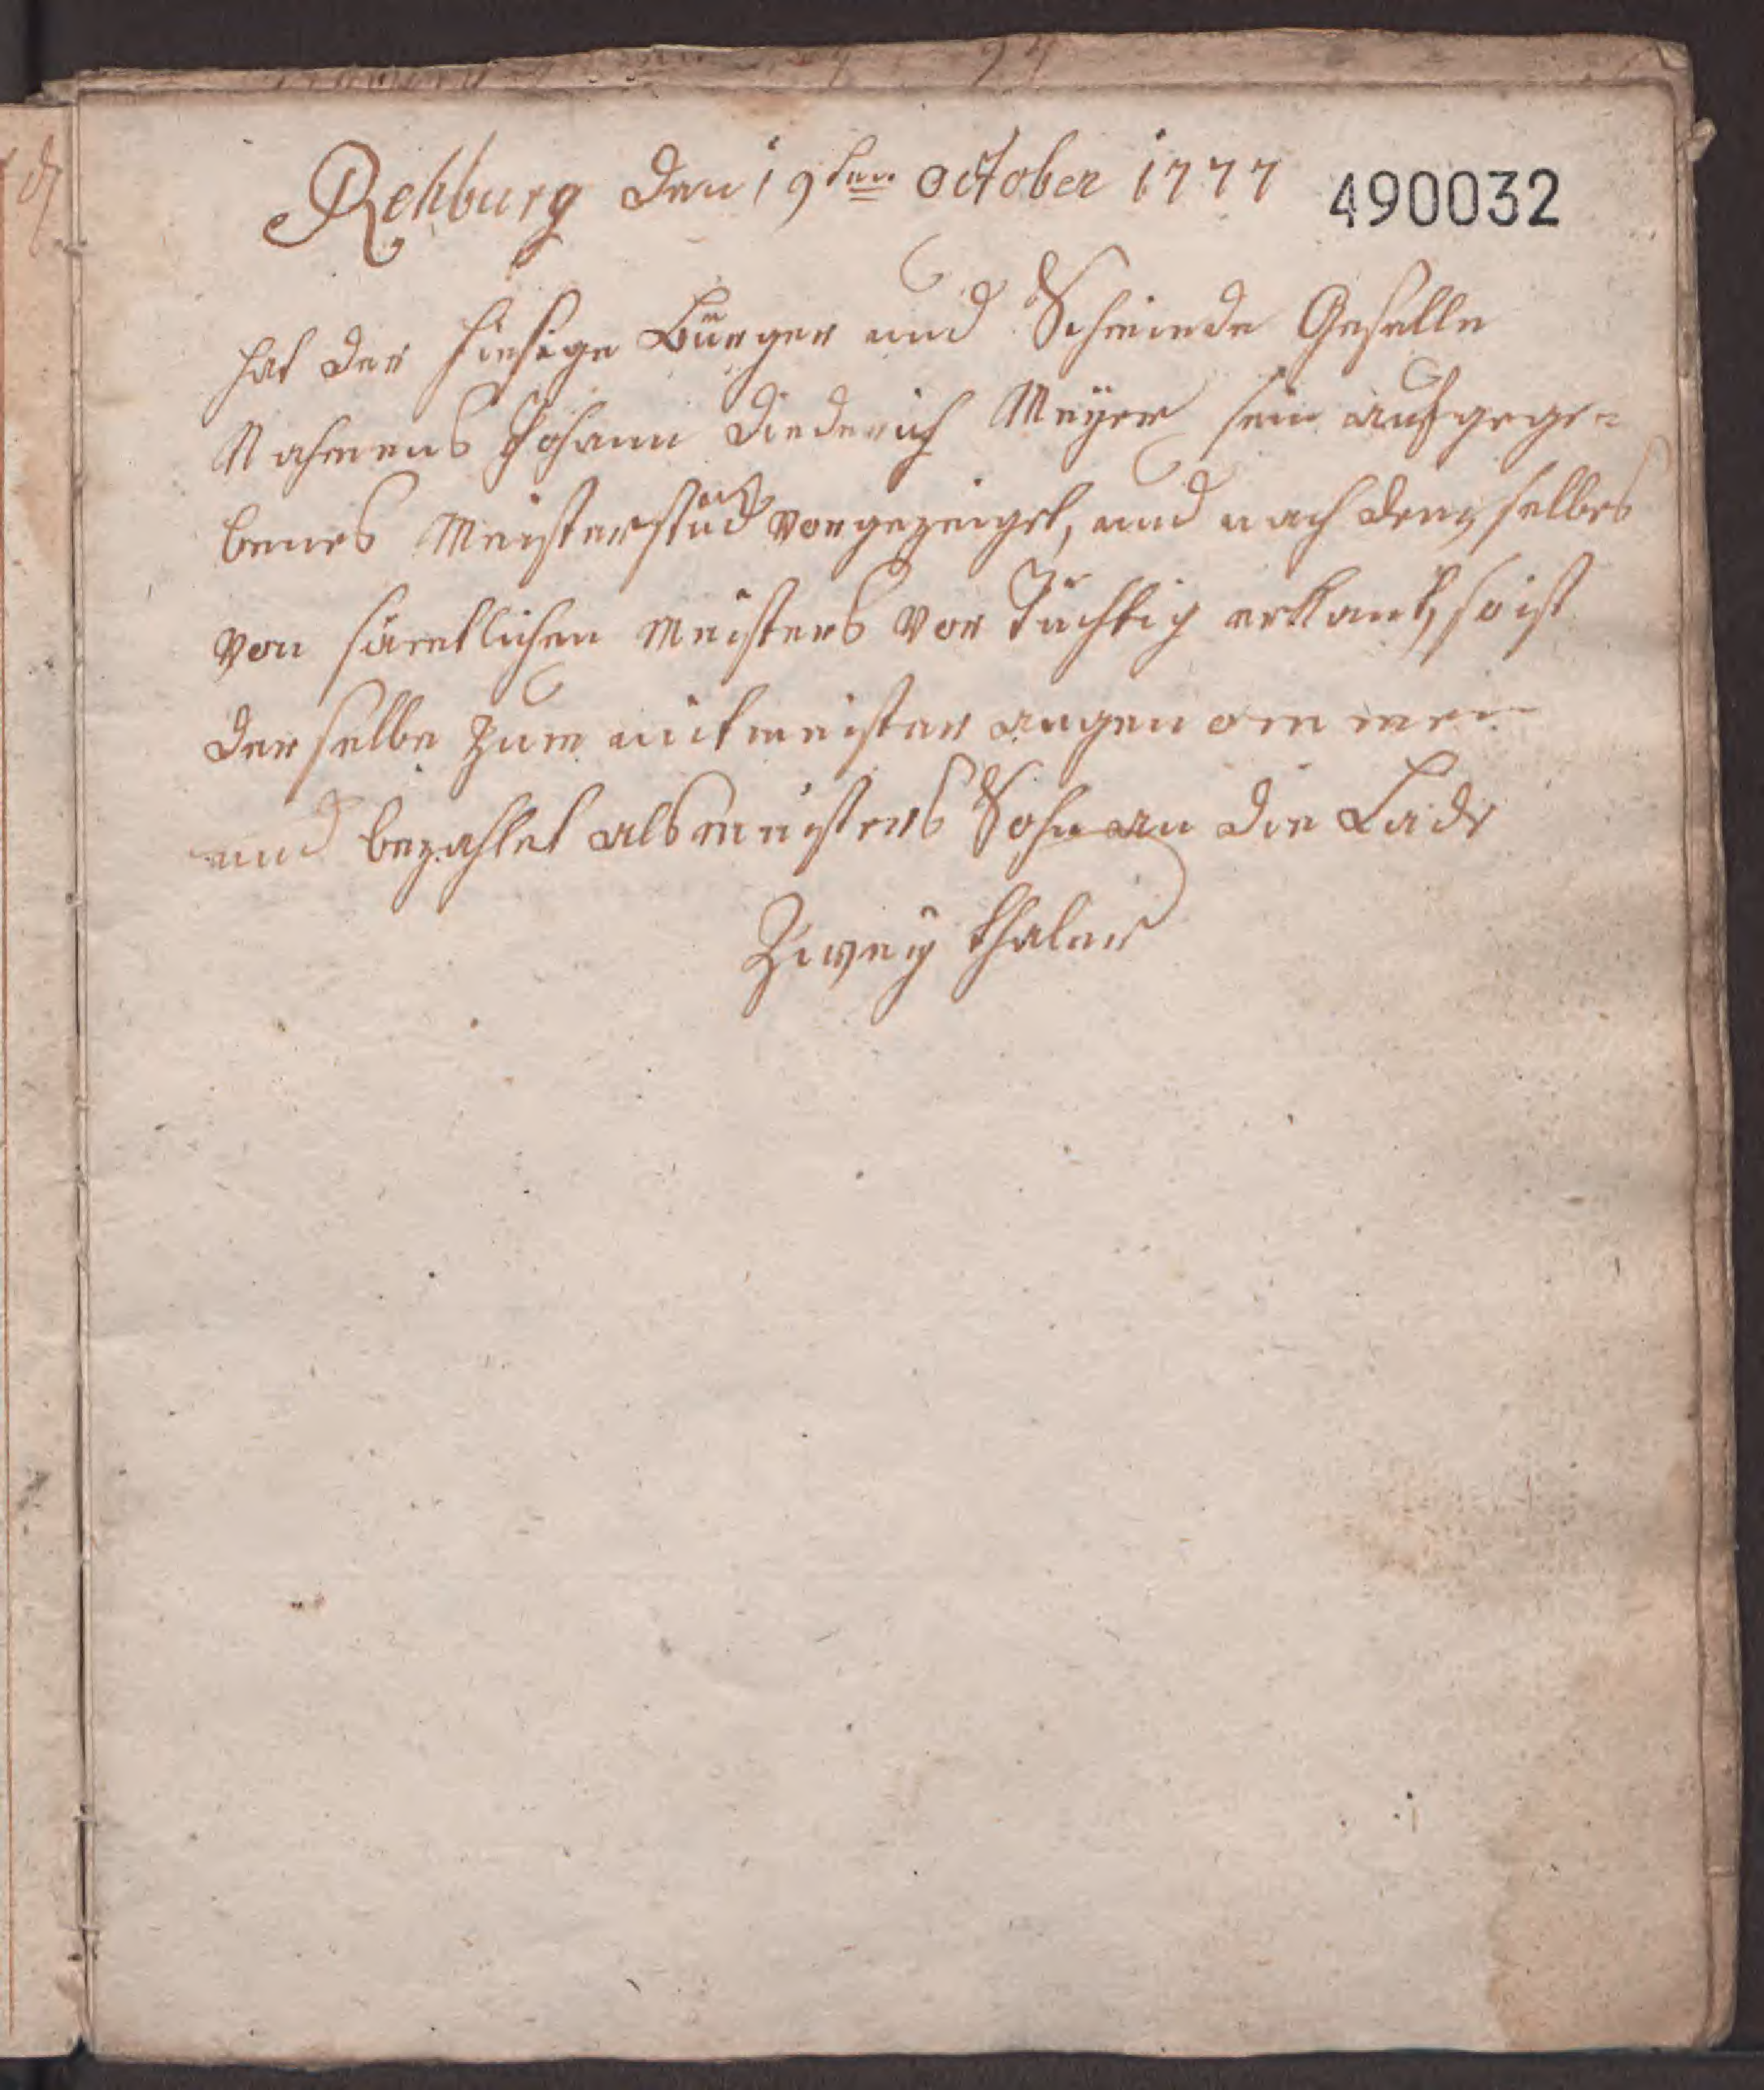 Rehburg den 19ten October 1777
490032
hat der hiesige Bürger und Schmiede Geselle
Nahmens Johann Diederich Meyer sein aufgege=
benes Meisterstück vorgezeiget, und nach dem selbes
von sämtlichen Meisters vor Tüchtig erkant, so ist
derselbe zum mitmeister angenommen
und bezahlet als meisters Sohn an die Lade
Zwey thaler